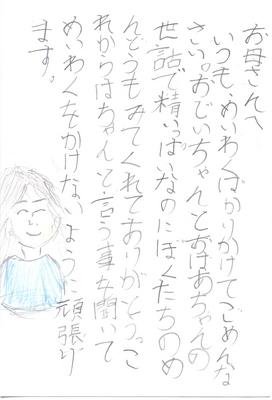 お母さんへ
いつも、めいわくばかりかけてごめんな
さい。おじいちゃんとおばあちゃんの
世話で精いっぱいなのにぼくたちのめ
んどうもみてくれてありがとうっこ
れからはちゃんと言う事を聞いて
めいわくをかけないように頑張り
ます。